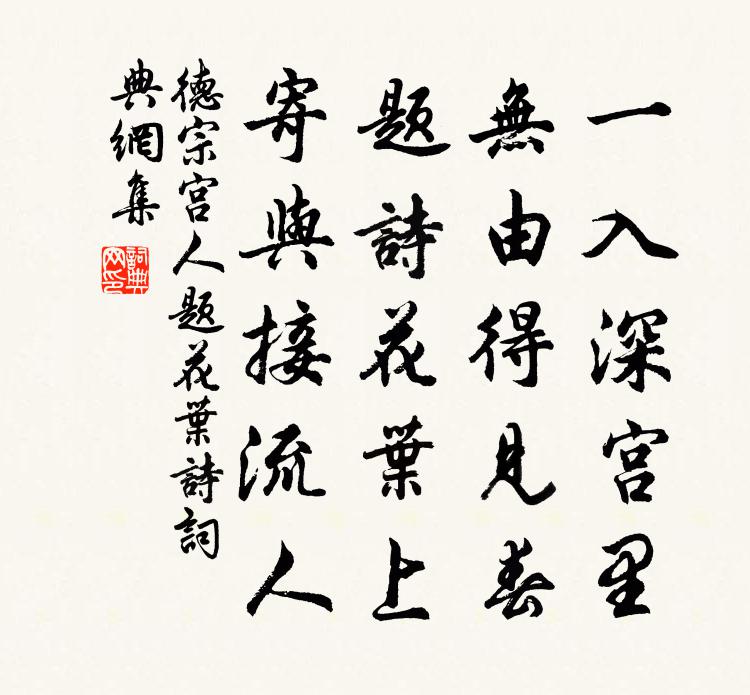 一入深宫里
無由得見春
題詩花葉上
寄與接流人
德宗宫人題花葉詩詞
典網集
詞典
网印